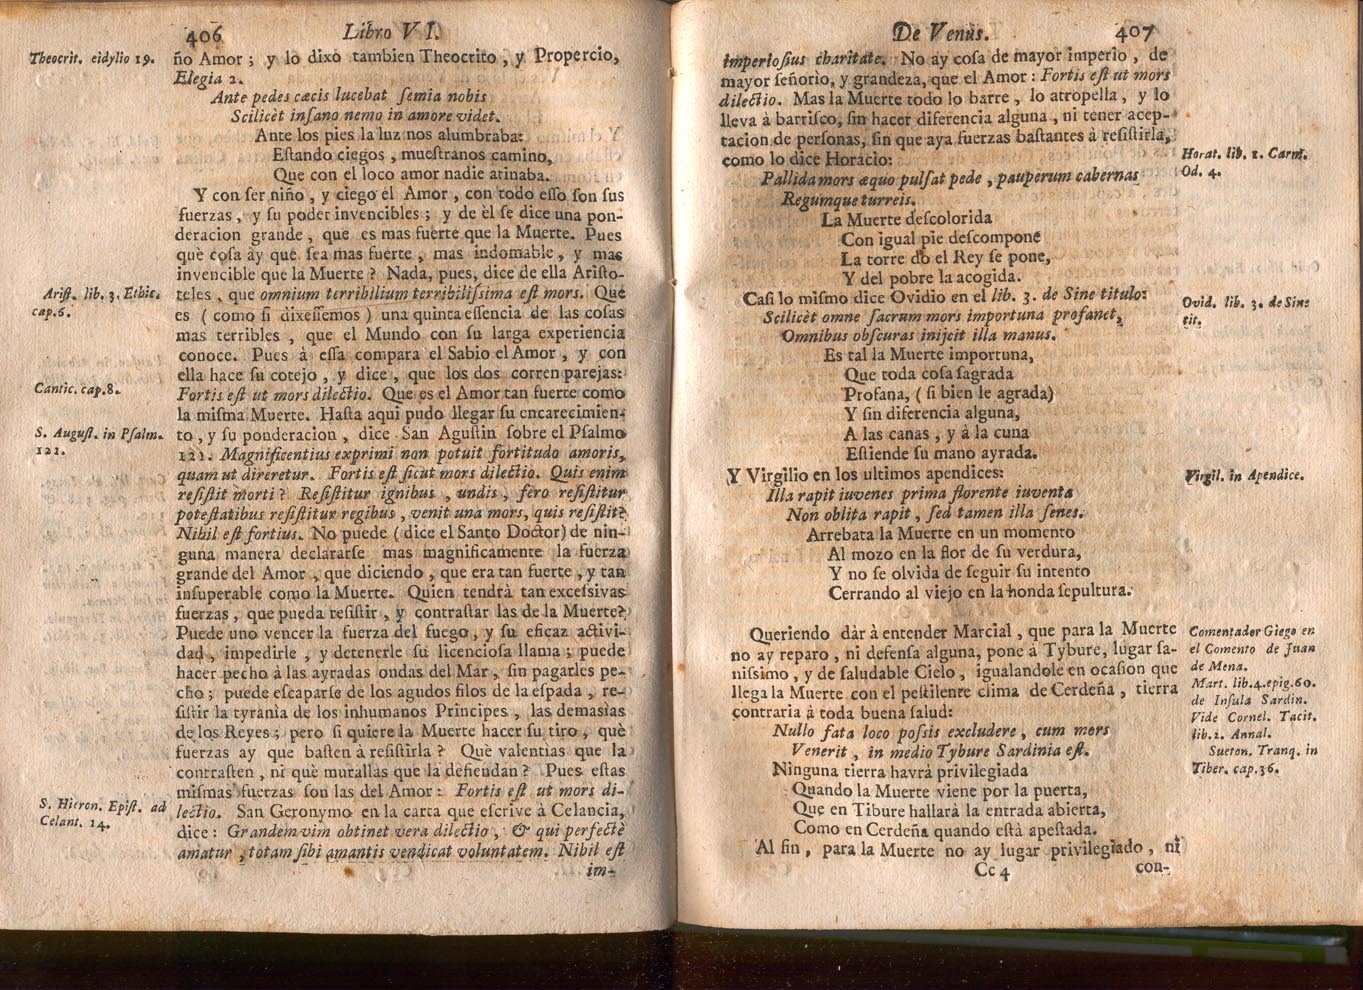 406
Libro VI.
Theocrit. eidylio 19.
ño Amor ; y lo dixo tambien Theocrito , y Propercio,
Elegia 2.
Ante pedes cæcis lucebat semia nobis
Scilicèt insano nemo in amore videt.
Ante los pies la luz nos alumbraba:
Estando ciegos , muestranos camino,
Que con el loco amor nadie atinaba.
Y con ser niño , y ciego el Amor , con todo esso son sus
fuerzas , y su poder invencibles ; y de èl se dice una pon-
deracion grande , que es mas fuerte que la Muerte. Pues
què cosa ay que sea mas fuerte , mas indomable , y mas
invencible que la Muerte ? Nada, pues, dice de ella Aristo-
Arist. lib. 3. Ethic.
cap.6.
teles , que omnium terribilium terribilissima est mors. Que
es ( como si dixessemos ) una quinta essencia de las cosas
mas terribles , que el Mundo con su larga experiencia
conoce. Pues à essa compara el Sabio el Amor , y con
ella hace su cotejo , y dice , que los dos corren parejas:
Cantic. cap.8.
Fortis est ut mors dilectio. Que es el Amor tan fuerte como
la misma Muerte. Hasta aqui pudo llegar su encarecimien-
S. August. in Psalm.
121.
to , y su ponderacion , dice San Agustin sobre el Psalmo
121. Magnificentius exprimi non potuit fortitudo amoris,
quam ut direretur. Fortis est sicut mors dilectio. Quis enim
resistit morti ? Resistitur ignibus , undis , fèro resistitur
potestatibus resistitur regibus , venit una mors, quis resistit?
Nihil est fortius. No puede (dice el Santo Doctor) de nin-
guna manera declararse mas magnificamente la fuerza
grande del Amor , que diciendo , que era tan fuerte , y tan
insuperable como la Muerte. Quien tendrà tan excessivas
fuerzas , que pueda resistir , y contrastar las de la Muerte?
Puede uno vencer la fuerza del fuego , y su eficaz activi-
dad , impedirle , y detenerle su licenciosa llama ; puede
hacer pecho à las ayradas ondas del Mar , sin pagarles pe-
cho ; puede escaparse de los agudos filos de la espada , re-
sistir la tyranìa de los inhumanos Principes , las demasìas
de los Reyes ; pero si quiere la Muerte hacer su tiro , què
fuerzas ay que basten à resistirla ? Què valentias que la
contrasten , ni què murallas que la defiendan ? Pues estas
mismas fuerzas son las del Amor : Fortis est ut mors di-
S. Hieron. Epist. ad
Celant. 14.
lectio. San Geronymo en la carta que escrive à Celancia,
dice : Grandem vim obtinet vera dilectio , & qui perfectè
amatur , totam sibi amantis vendicat voluntatem. Nihil est
im-
De Venus.
407
imperiosius charitate. No ay cosa de mayor imperio , de
mayor señorio, y grandeza, que el Amor : Fortis est ut mors
dilectio. Mas la Muerte todo lo barre , lo atropella , y lo
lleva à barrisco, sin hacer diferencia alguna , ni tener acep-
tacion de personas, sin que aya fuerzas bastantes à resistirla,
como lo dice Horacio:
Horat. lib. 1. Carm.
Od. 4.
Pallida mors æquo pulsat pede , pauperum cabernas
Regumque turreis.
La Muerte descolorida
Con igual pie descompone
La torre dò el Rey se pone,
Y del pobre la acogida.
Casi lo mismo dice Ovidio en el lib. 3. de Sine titulo:
Ovid. lib. 3. de Sine
tit.
Scilicèt omne sacrum mors importuna profanet,
Omnibus obscuras inijcit illa manus.
Es tal la Muerte importuna,
Que toda cosa sagrada
Profana, ( si bien le agrada)
Y sin diferencia alguna,
A las canas , y à la cuna
Estiende su mano ayrada.
Y Virgilio en los ultimos apendices:
Virgil. in Apendice.
Illa rapit iuvenes prima florente iuventa
Non oblita rapit , sed tamen illa senes.
Arrebata la Muerte en un momento
Al mozo en la flor de su verdura,
Y no se olvida de seguir su intento
Cerrando al viejo en la honda sepultura.
Queriendo dàr à entender Marcial , que para la Muerte
no ay reparo , ni defensa alguna, pone à Tybure, lugar sa-
nissimo , y de saludable Cielo , igualandole en ocasion que
llega la Muerte con el pestilente clima de Cerdeña , tierra
contraria à toda buena salud:
Comentador Giego en
el Comento de Juan
de Mena.
Mart. lib.4.epig.60.
de Insula Sardin.
Vide Cornel. Tacit.
lib.2. Annal.
Sueton. Tranq. in
Tiber. cap.36.
Nullo fata loco possis excludere , cum mors
Venerit , in medio Tybure Sardinia est.
Ninguna tierra havrà privilegiada
Quando la Muerte viene por la puerta,
Que en Tibure hallarà la entrada abierta,
Como en Cerdeña quando està apestada.
Al fin , para la Muerte no ay lugar privilegiado , ni
Cc 4
con-